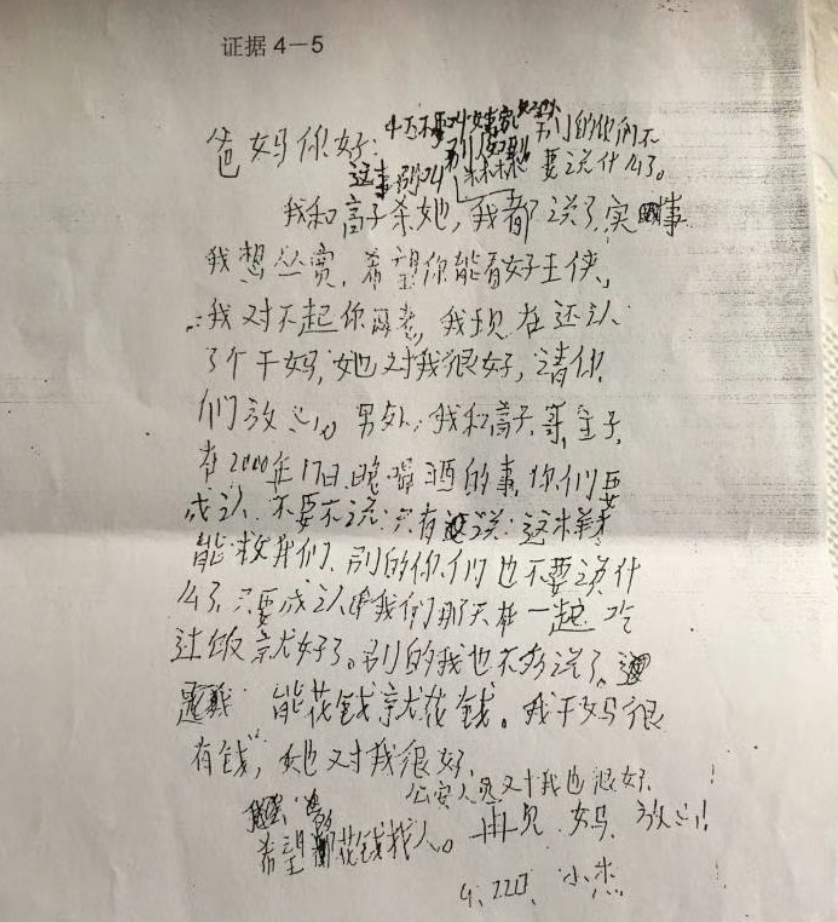 证据 4－5
爸妈你好：
别的你们不
要说什么了。
这事别叫
我和高子杀她，我都说了实事
我想丛宽，希望你能看好王侠，
我对不起你二老，我现在还认
了个干妈，她对我很好，请你
们放心，另外，我和高子、哥，
在2000年17日晚喝酒的事，你们要
成认，不要不说，只有这说，这样才
能救我们，别的你们也不要说什
么了，只要成认我们那天在一起吃
过饭就好了。别的我也不多说了。
能花钱就花钱。我干妈很
有钱，她对我很好，
公安人员对我也很好。
希望花钱找人。再见 妈 放心！
4、22日、小杰